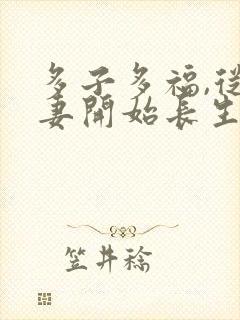 多子多福,從
妻開始長生
笠井稔